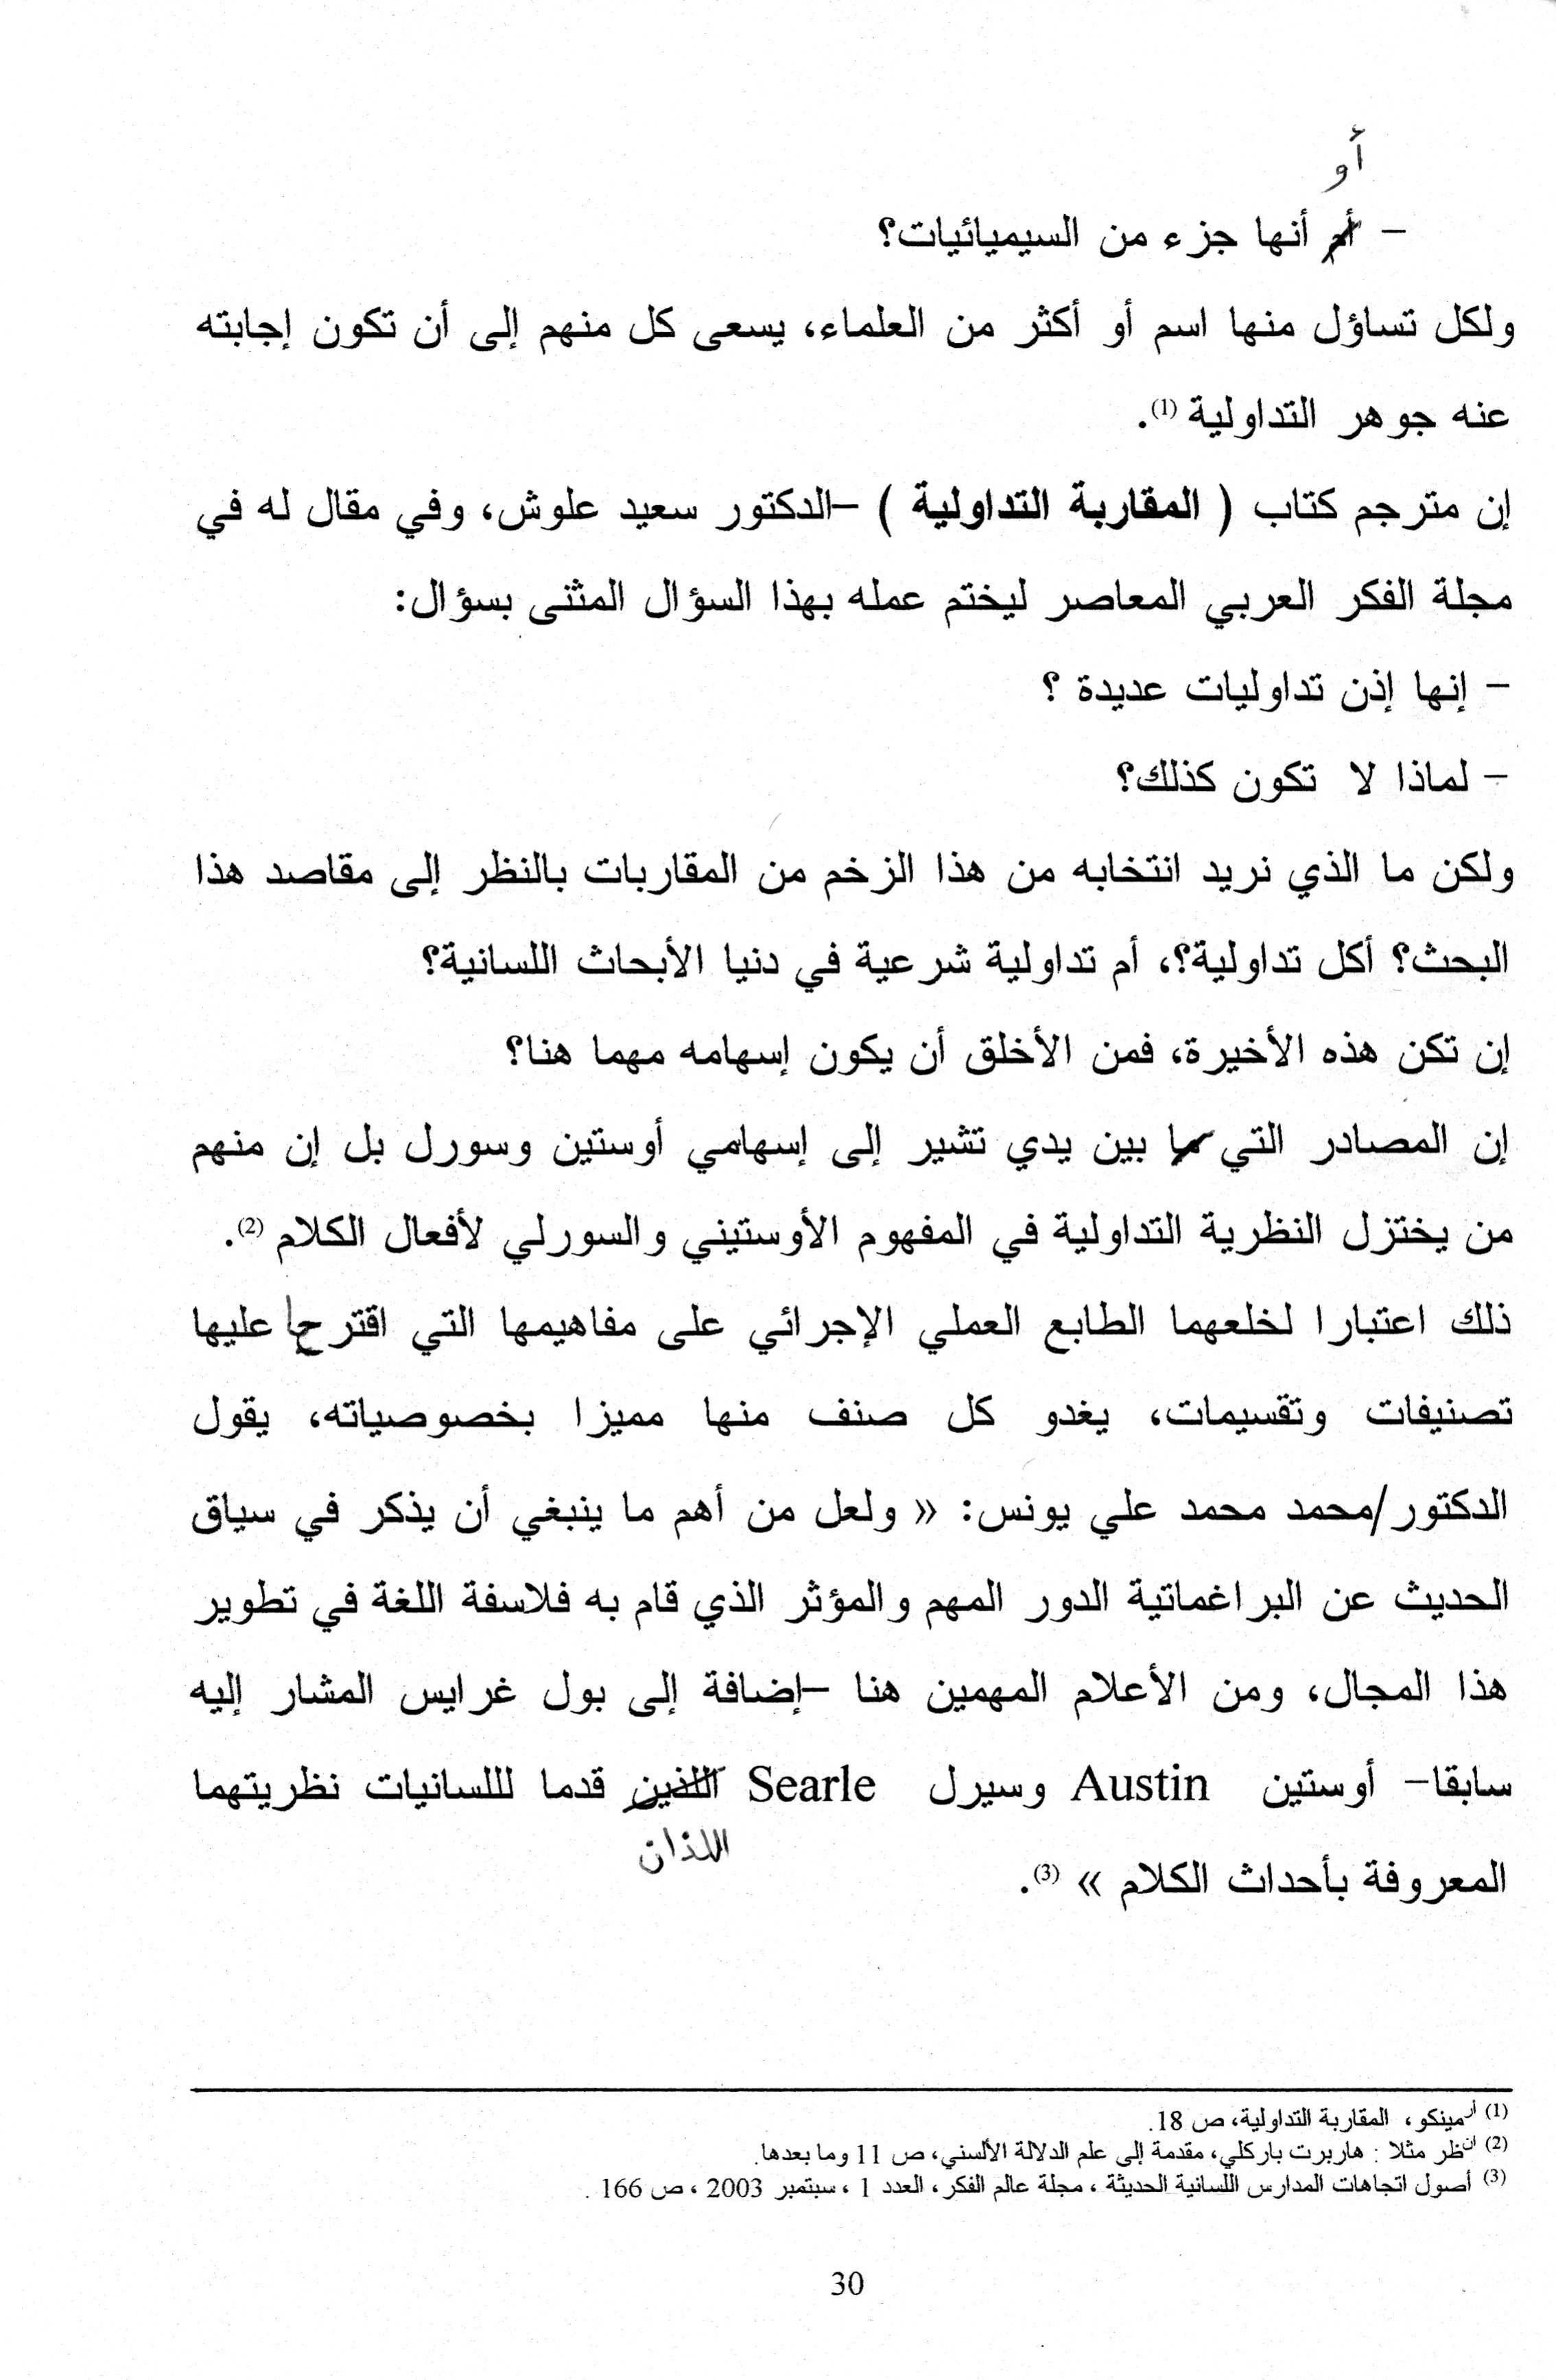 أو
- أم أنها جزء من السيميائيات؟
ولكل تساؤل منها اسم أو أكثر من العلماء، يسعى كل منهم إلى أن تكون إجابته
عنه جوهر التداولية (1).
إن مترجم كتاب ( المقاربة التداولية ) –الدكتور سعيد علوش، وفي مقال له في
مجلة الفكر العربي المعاصر ليختم عمله بهذا السؤال المثنى بسؤال:
- إنها إذن تداوليات عديدة ؟
- لماذا لا تكون كذلك؟
ولكن ما الذي نريد انتخابه من هذا الزخم من المقاربات بالنظر إلى مقاصد هذا
البحث؟ أكل تداولية؟، أم تداولية شرعية في دنيا الأبحاث اللسانية؟
إن تكن هذه الأخيرة، فمن الأخلق أن يكون إسهامه مهما هنا؟
إن المصادر التي ما بين يدي تشير إلى إسهامي أوستين وسورل بل إن منهم
من يختزل النظرية التداولية في المفهوم الأوستيني والسورلي لأفعال الكلام (2).
ذلك اعتبارا لخلعهما الطابع العملي الإجرائي على مفاهيمها التي اقترحا عليها
تصنيفات وتقسيمات، يغدو كل صنف منها مميزا بخصوصياته، يقول
الدكتور/محمد محمد علي يونس: « ولعل من أهم ما ينبغي أن يذكر في سياق
الحديث عن البراغماتية الدور المهم والمؤثر الذي قام به فلاسفة اللغة في تطوير
هذا المجال، ومن الأعلام المهمين هنا –إضافة إلى بول غرايس المشار إليه
سابقا– أوستين Austin وسيرل Searle اللذين قدما لللسانيات نظريتهما
اللذان
المعروفة بأحداث الكلام » (3).
(1) أرمينكو، المقاربة التداولية، ص 18.
(2) انظر مثلا : هاربرت باركلي، مقدمة إلى علم الدلالة الألسني، ص 11 وما بعدها.
(3) أصول اتجاهات المدارس اللسانية الحديثة ، مجلة عالم الفكر، العدد 1 ، سبتمبر 2003 ، ص 166 .
30